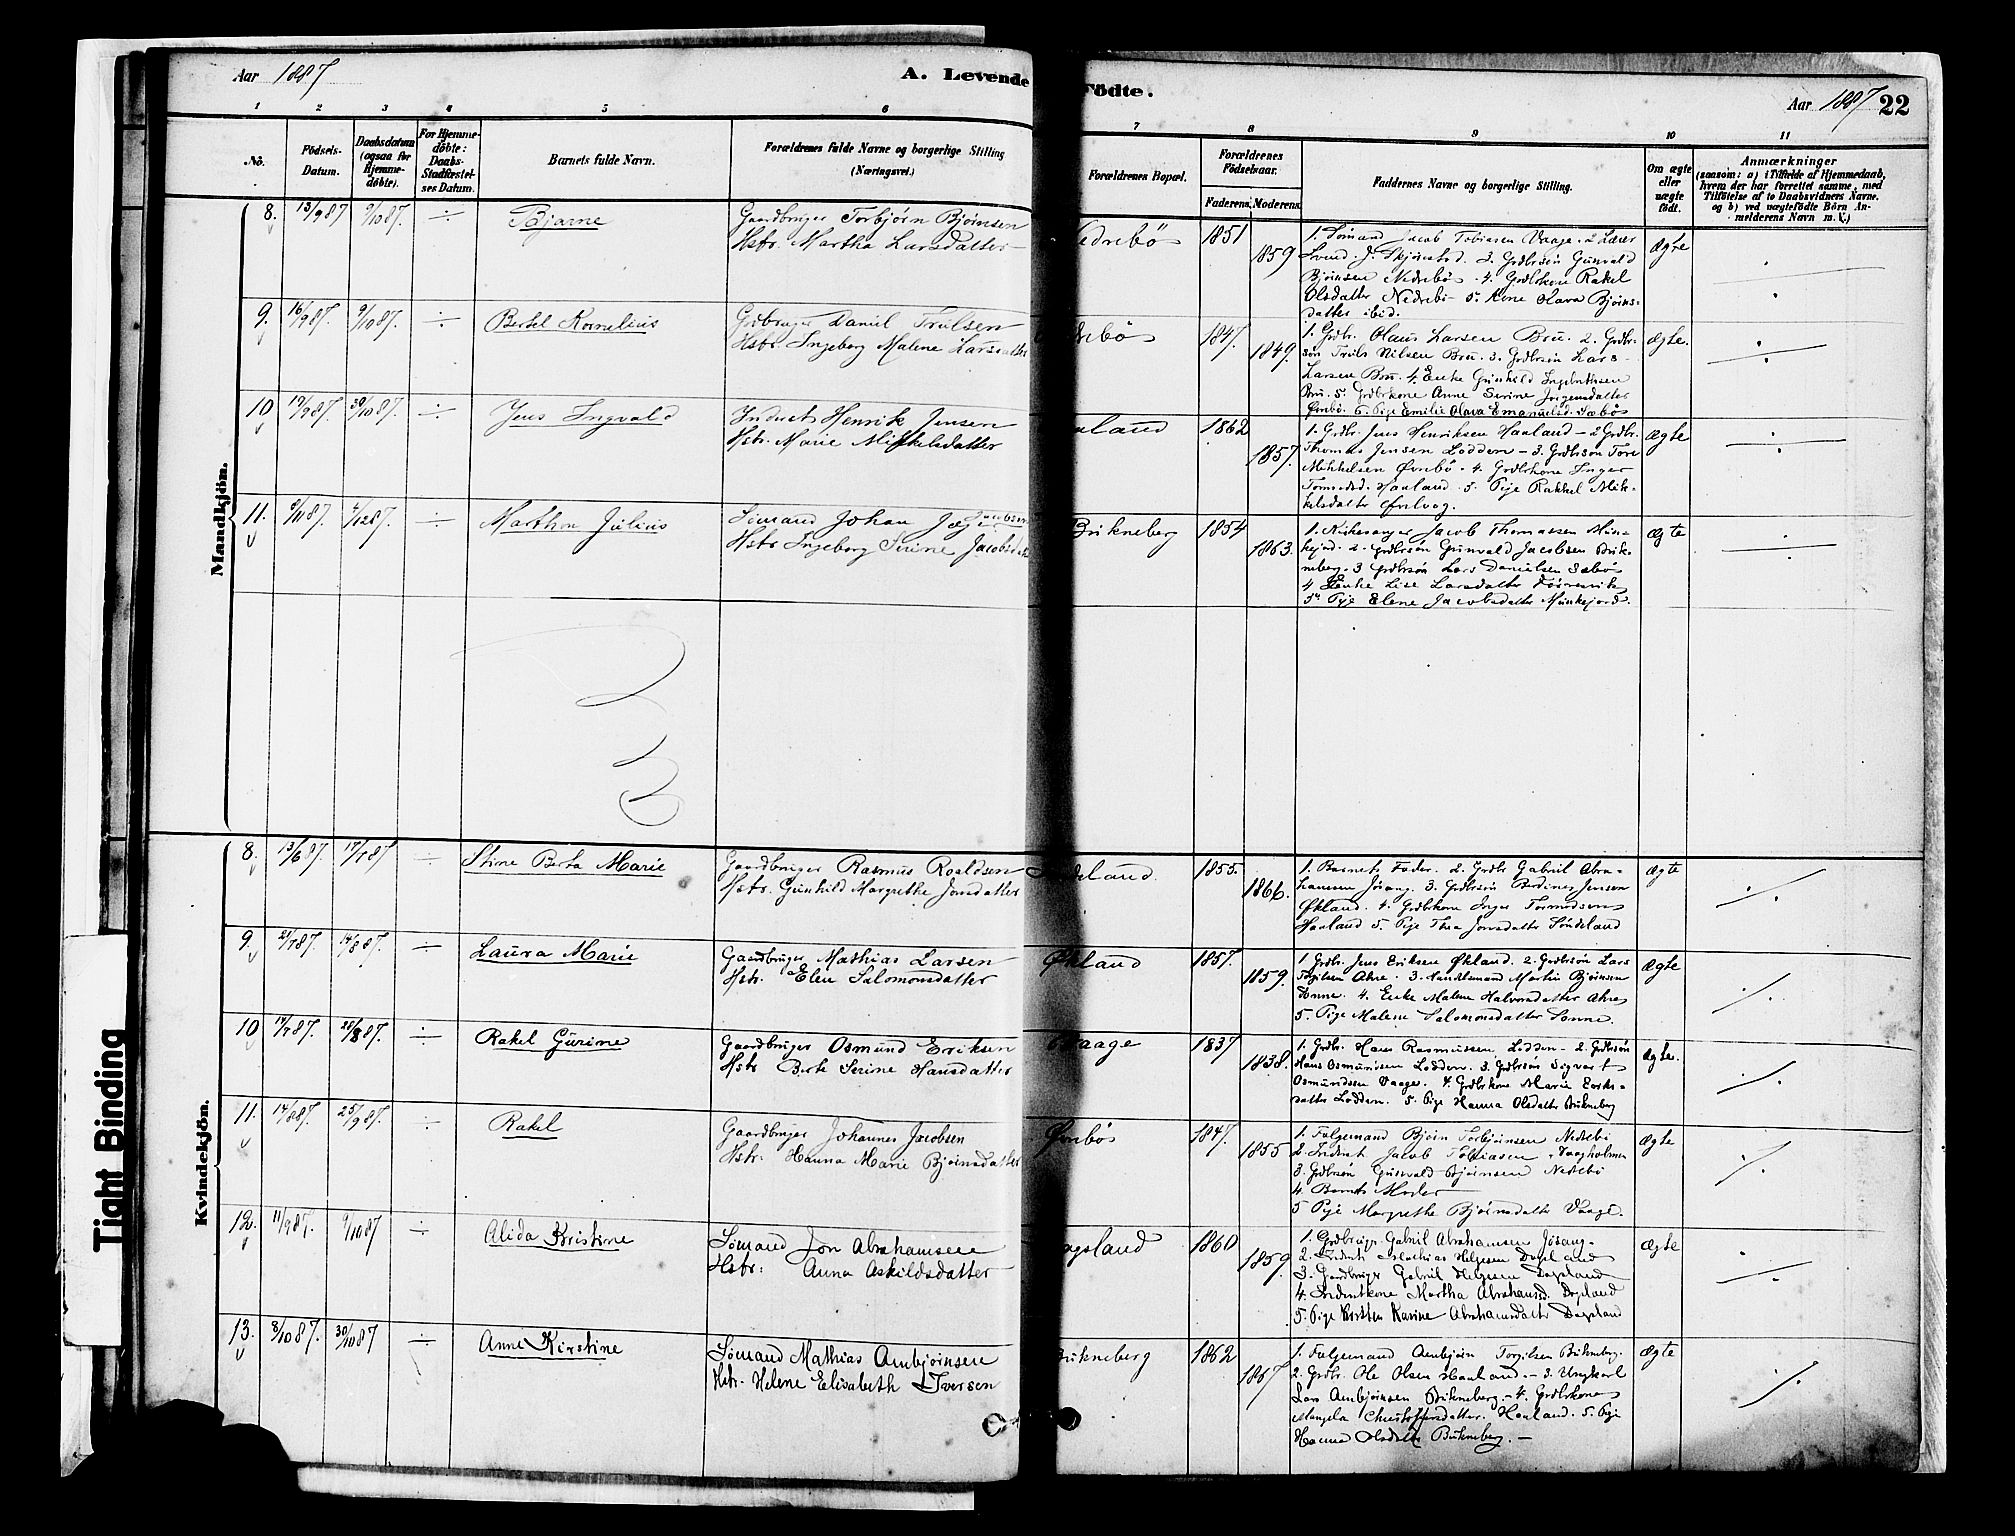 Aar 1887
A. Levende Födte.
Aar 1887
22
1 2 3 4 5 6 7 8 9 10 11
No.
Födsels-
Datum.
Daabsdatum
(ogsaa for
Hjemme-
döbte).
For Hjemme-
döbte:
Daabs-
Stadfæstel-
ses Datum.
Barnets fulde Navn.
Forældrenes fulde Navne og borgerlige Stilling
(Næringsvei.)
Forældrenes Bopæl.
Forældrenes
Födselsaar.
Faderens. Moderens.
Faddernes Navne og borgerlige Stilling.
Om ægte
eller
uægte
födt.
Anmærkninger
(saasom: a) i Tilfælde af Hjemmedaab,
hvem der har forrettet samme, med
Tilföielse af to Daabsvidners Navne.
og b) ved uægtefödte Börn An-
melderens Navn m. V.)
Mandkjön.
8. 13/9 87 9/10 87. ÷ Bjarne
Gaardbruger Torbjörn Björnsen
Hstr. Martha Larsdatter
1851
1859
1. Sömand Jacob Tobiasen Vaage. 2 Lærer
Svend J. 3. Grdbrsön Gunvald
Björnsen Nedrebö. 4. Grdbrkone Rakel
Olsdatter Nedrebö 5. Kone Björns-
datter ibid.
Ægte
9. 16/9 87. 9/10 87. ÷ Bertel Kornelius
Grbruger Daniel Trulsen
Hstr. Ingeborg Malene Larsdatter
1847.
1849.
1. Grdbr. Olaus Larsen Bru. 2. Grdbr-
sön Truls Nilsen Bru. 3. Grdbrsön Lars
Larsen Bru. 4. Enke Gunhild
Bru. 5. Grdbrkone Anne Serine Jörgensdatter
6. Pige Emilie Olava Emanuelsd. Sæbö
Ægte.
10 19/9 87. 30/10 87. ÷ Jens Ingvald
Inderst Henrik Jensen
Hstr. Marie Mikkelsdatter
1862
1857.
1. Grdbr. Jens Henriksen Haaland - 2 Grdbr.
Thomas Jensen Lodden - 3. Grdbrsön Tore
Mikkelsen Övrebö. 4. Grdbrkone Inger
Haaland. 5. Pige Rakkel Mik-
kelsdatter
Ægte
11. 4/12 87. ÷ Marthon Julius
Sömand Johan Jacobsen
Hstr. Ingeborg Serine
Bukneberg 1854
1863.
1. Kirkesanger Jacob Thomassen
2. Grdbrsön Gunvald Jacobsen Buk-
neberg. 3 Grdbrsön Lars Danielsen Sæbö
4 Enke Lise Larsdatter
5. Pige Elene Jacobsdatter
Ægte
Kvindekjön.
8. 13/6 87. 17/7 87 ÷ Stine Berta Marie
Gaardbruger Rasmus Roaldsen
Hstr. Gunhild Margrethe Jonsdatter
1855.
1866.
1. Barnets Fader. 2. Grdbr Gabriel Abra-
hamsen Jösang. 3. Grdbrsön Berdines Jensen
Økland. 4. Grdbrkone Inger
Haaland 5. Pige Thea Jonsdatter Söndeland
Ægte
9. 21/7 87. 14/8 87. ÷ Laura Marie
Gaardbruger Mathias Larsen
Hstr. Elen Salomonsdatter
Økland 1857.
1859.
1 Grdbr. Jens Eriksen Økland. 2. Grdbrsön Lars
Ahre. 3. Handelsmand Martin Björnsen
4. Enke Malene Halvorsdatter Ahre
5. Pige Malene Salomonsdatter
Ægte
10 28/8 87. ÷ Rakel Gurine
Gaardbruger Osmund Eriksen
Hstr Berte Serine Hansdatter
Vaage 1837
1838.
1. Grdbr. Hans Rasmussen Lodden - 2. Grdbrsön
Hans Osmundsen Lodden. 3. Grdbrsön Sigvart
Osmundsen Vaage. 4. Grdbrkone Marie Eriks-
datter Lodden. 5. Pige Hanna Olsdatter Bukneberg
Ægte.
11. 14/8 87. 25/9 87. ÷ Rakel
Gaardbruger Johannes Jacobsen
Hstr. Hanna Marie Björnsdatter
Övrebö 1847.
1855
1. Fölgemand Björn Torbjörnsen Nedrebö
2. Inderst Jacob Tobiasen Vaagholmen
3. Grdbrsön Gunvald Bjørnsen Nedrebö
4. Barnets Moder
5 Pige Margrethe Bjørnsdatter Vaage.
Ægte
12. 11/9 87. 9/10 87 ÷ Alida Kristine
Sömand Jon Abrahamsen
Hstr: Anna Askildsdatter
1860
1859.
1. Grdbruger Gabriel Abrahamsen Jösang.
2. Inderst Mathias Helgesen Dagsland
3. Gaardbruger Gabriel Helgesen Dagsland
4. Inderstkone Martha Abrahamsd. Dagsland
5. Pige Kirsten Karine Abrahamsdatter Dagsland
Ægte
13. 8/10 87. 30/10 87 ÷ Anne Kirstine
Sömand Mathias Arnbjörnsen
Hstr. Helene Elisabeth Iversen
Bukneberg 1862
1867
1. Fölgemand Arnbjörn Torgilsen Bukneberg.
2. Grdbr. Ole Olsen Haaland. - 3. Ungkarl
Lars Arnbjörnsen Bukneberg. - 4. Grdbrkone
Christoffersdatter. Haaland. 5. Pige
Hanna Olsdatter Bukneberg. -
Ægte
Tight Binding